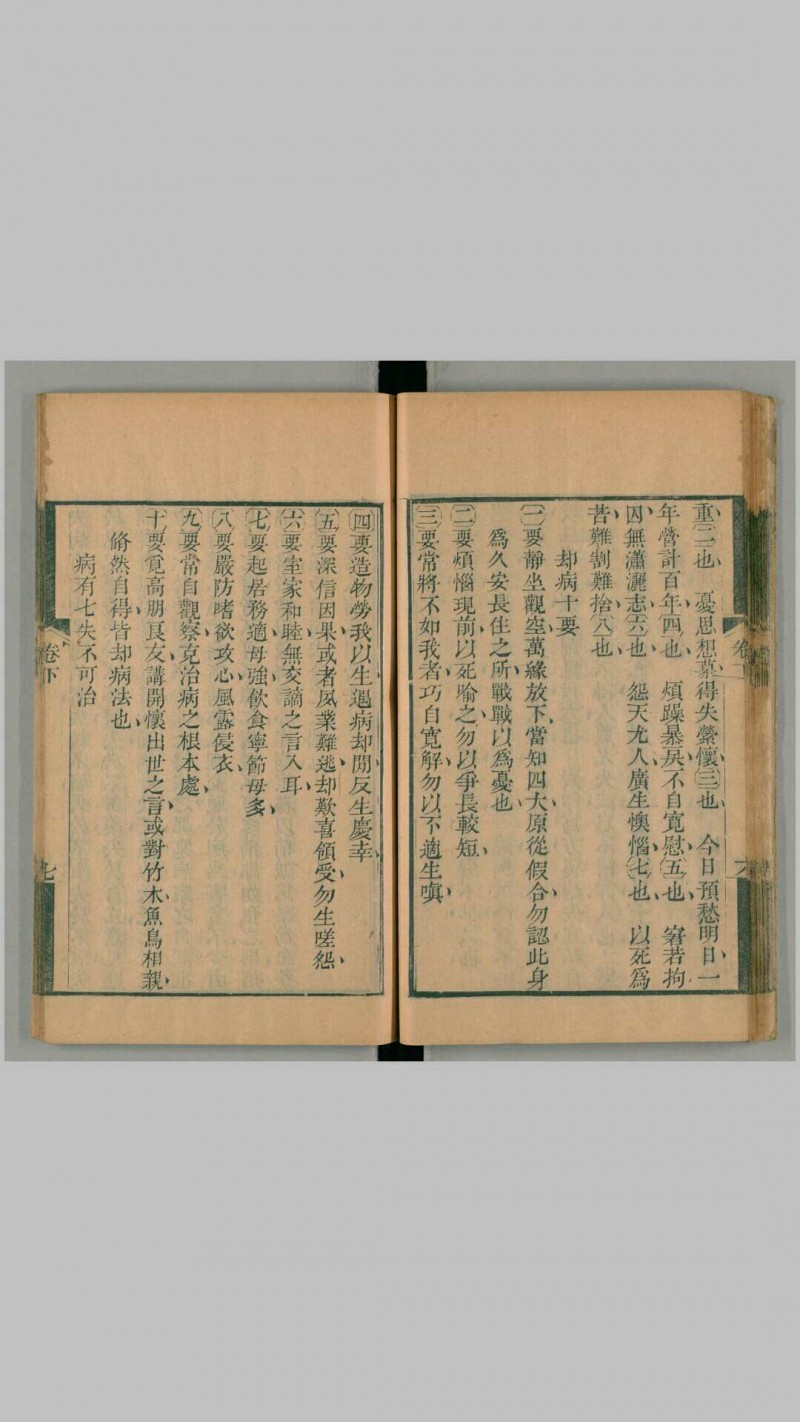 重二也　憂思想慕得失縈懷三也　今日預愁明日一
年營計百年四也　煩躁暴戾不自寬慰五也　窘若拘
囚無瀟灑志六也　怨天尤人廣生懊惱七也　以死爲
苦難割難捨八也
却病十要
一要靜坐觀空萬緣放下當知四大原從假合勿認此身
爲久安長住之所戰戰以爲憂也
二要煩惱現前以死喻之勿以爭長較短
三要常將不如我者巧自寬解勿以不適生嗔
四要造物勞我以生遇病却閒反生慶幸
五要深信因果或者夙業難逃却歎喜領受勿生嗟怨
六要室家和睦無交謫之言入耳
七要起居務適毋強飲食寧節毋多
八要嚴防嗜欲攻心風露侵衣
九要常自觀察克治病之根本處
十要覓高朋良友講開懷出世之言或對竹木魚鳥相親
翛然自得皆却病法也
病有七失不可治
卷下
七